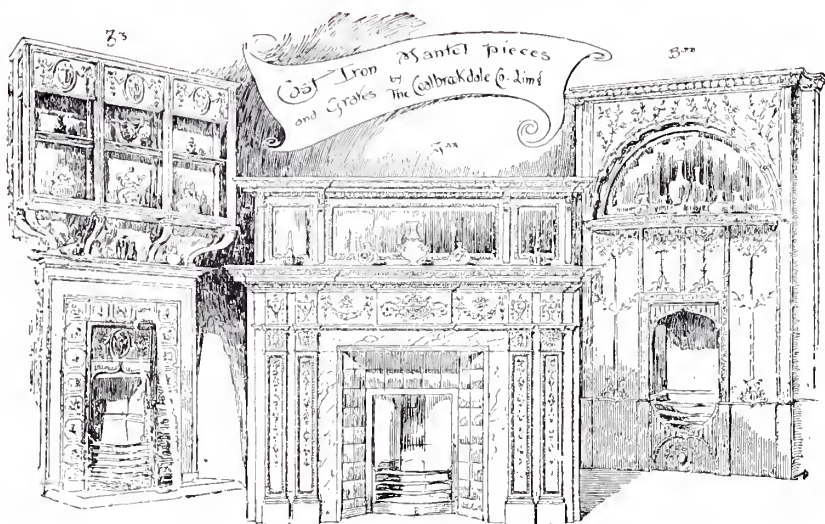 Cast Iron Mantel pieces
and Grates by The Coalbrookdale Co. Limd